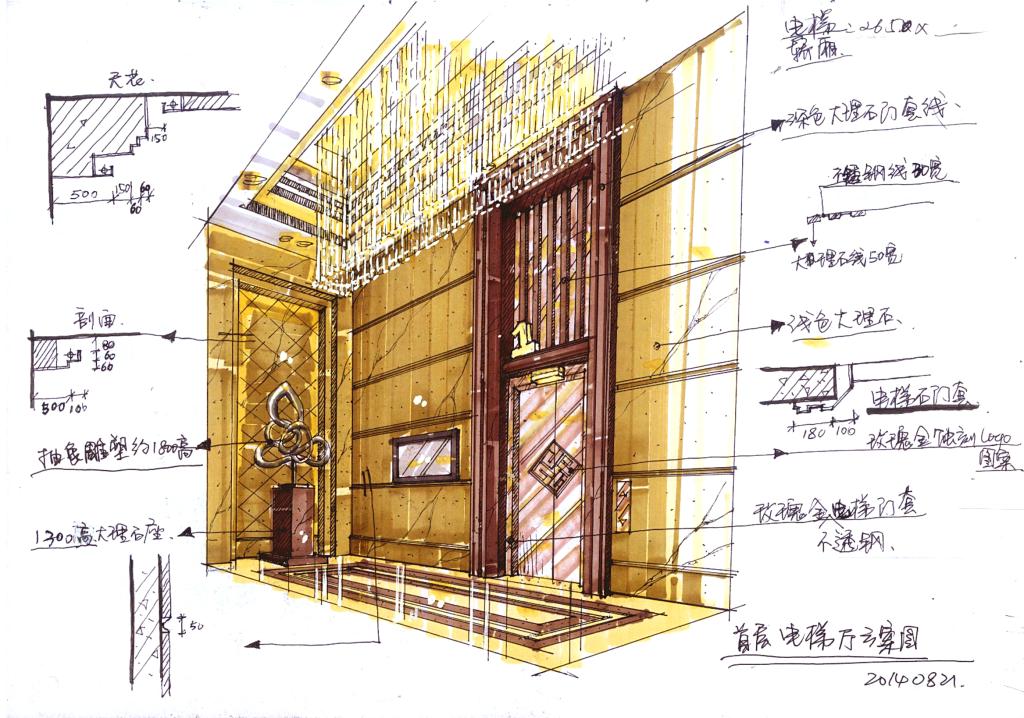 天花.
150
500
150
60
60
剖面.
80
60
60
500
100
抽象雕塑约1800高
1300高大理石座.
50
1
电梯
轿厢.
深色大理石门套线、
不锈钢线30宽
大理石线50宽
浅色大理石、
电梯石门套
180
100
玫瑰金蚀刻Logo
图案
玫瑰金电梯门套
不透钢、
首层电梯厅方案图
20140821.